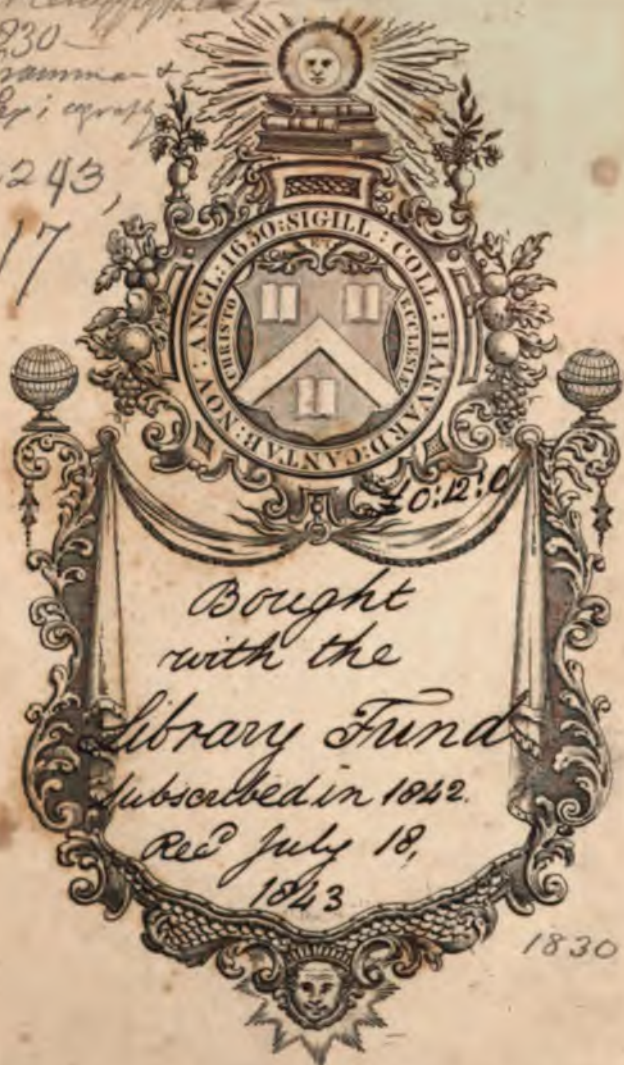 230
243,
17
SIGILL : COLL : HARVARD : CANTAB : NOV : ANGL : 1650 :
CHRISTO ET ECCLESIÆ
£0:12:0
Bought
with the
Library Fund
subscribed in 1842.
Rec^d July 18,
1843
1830